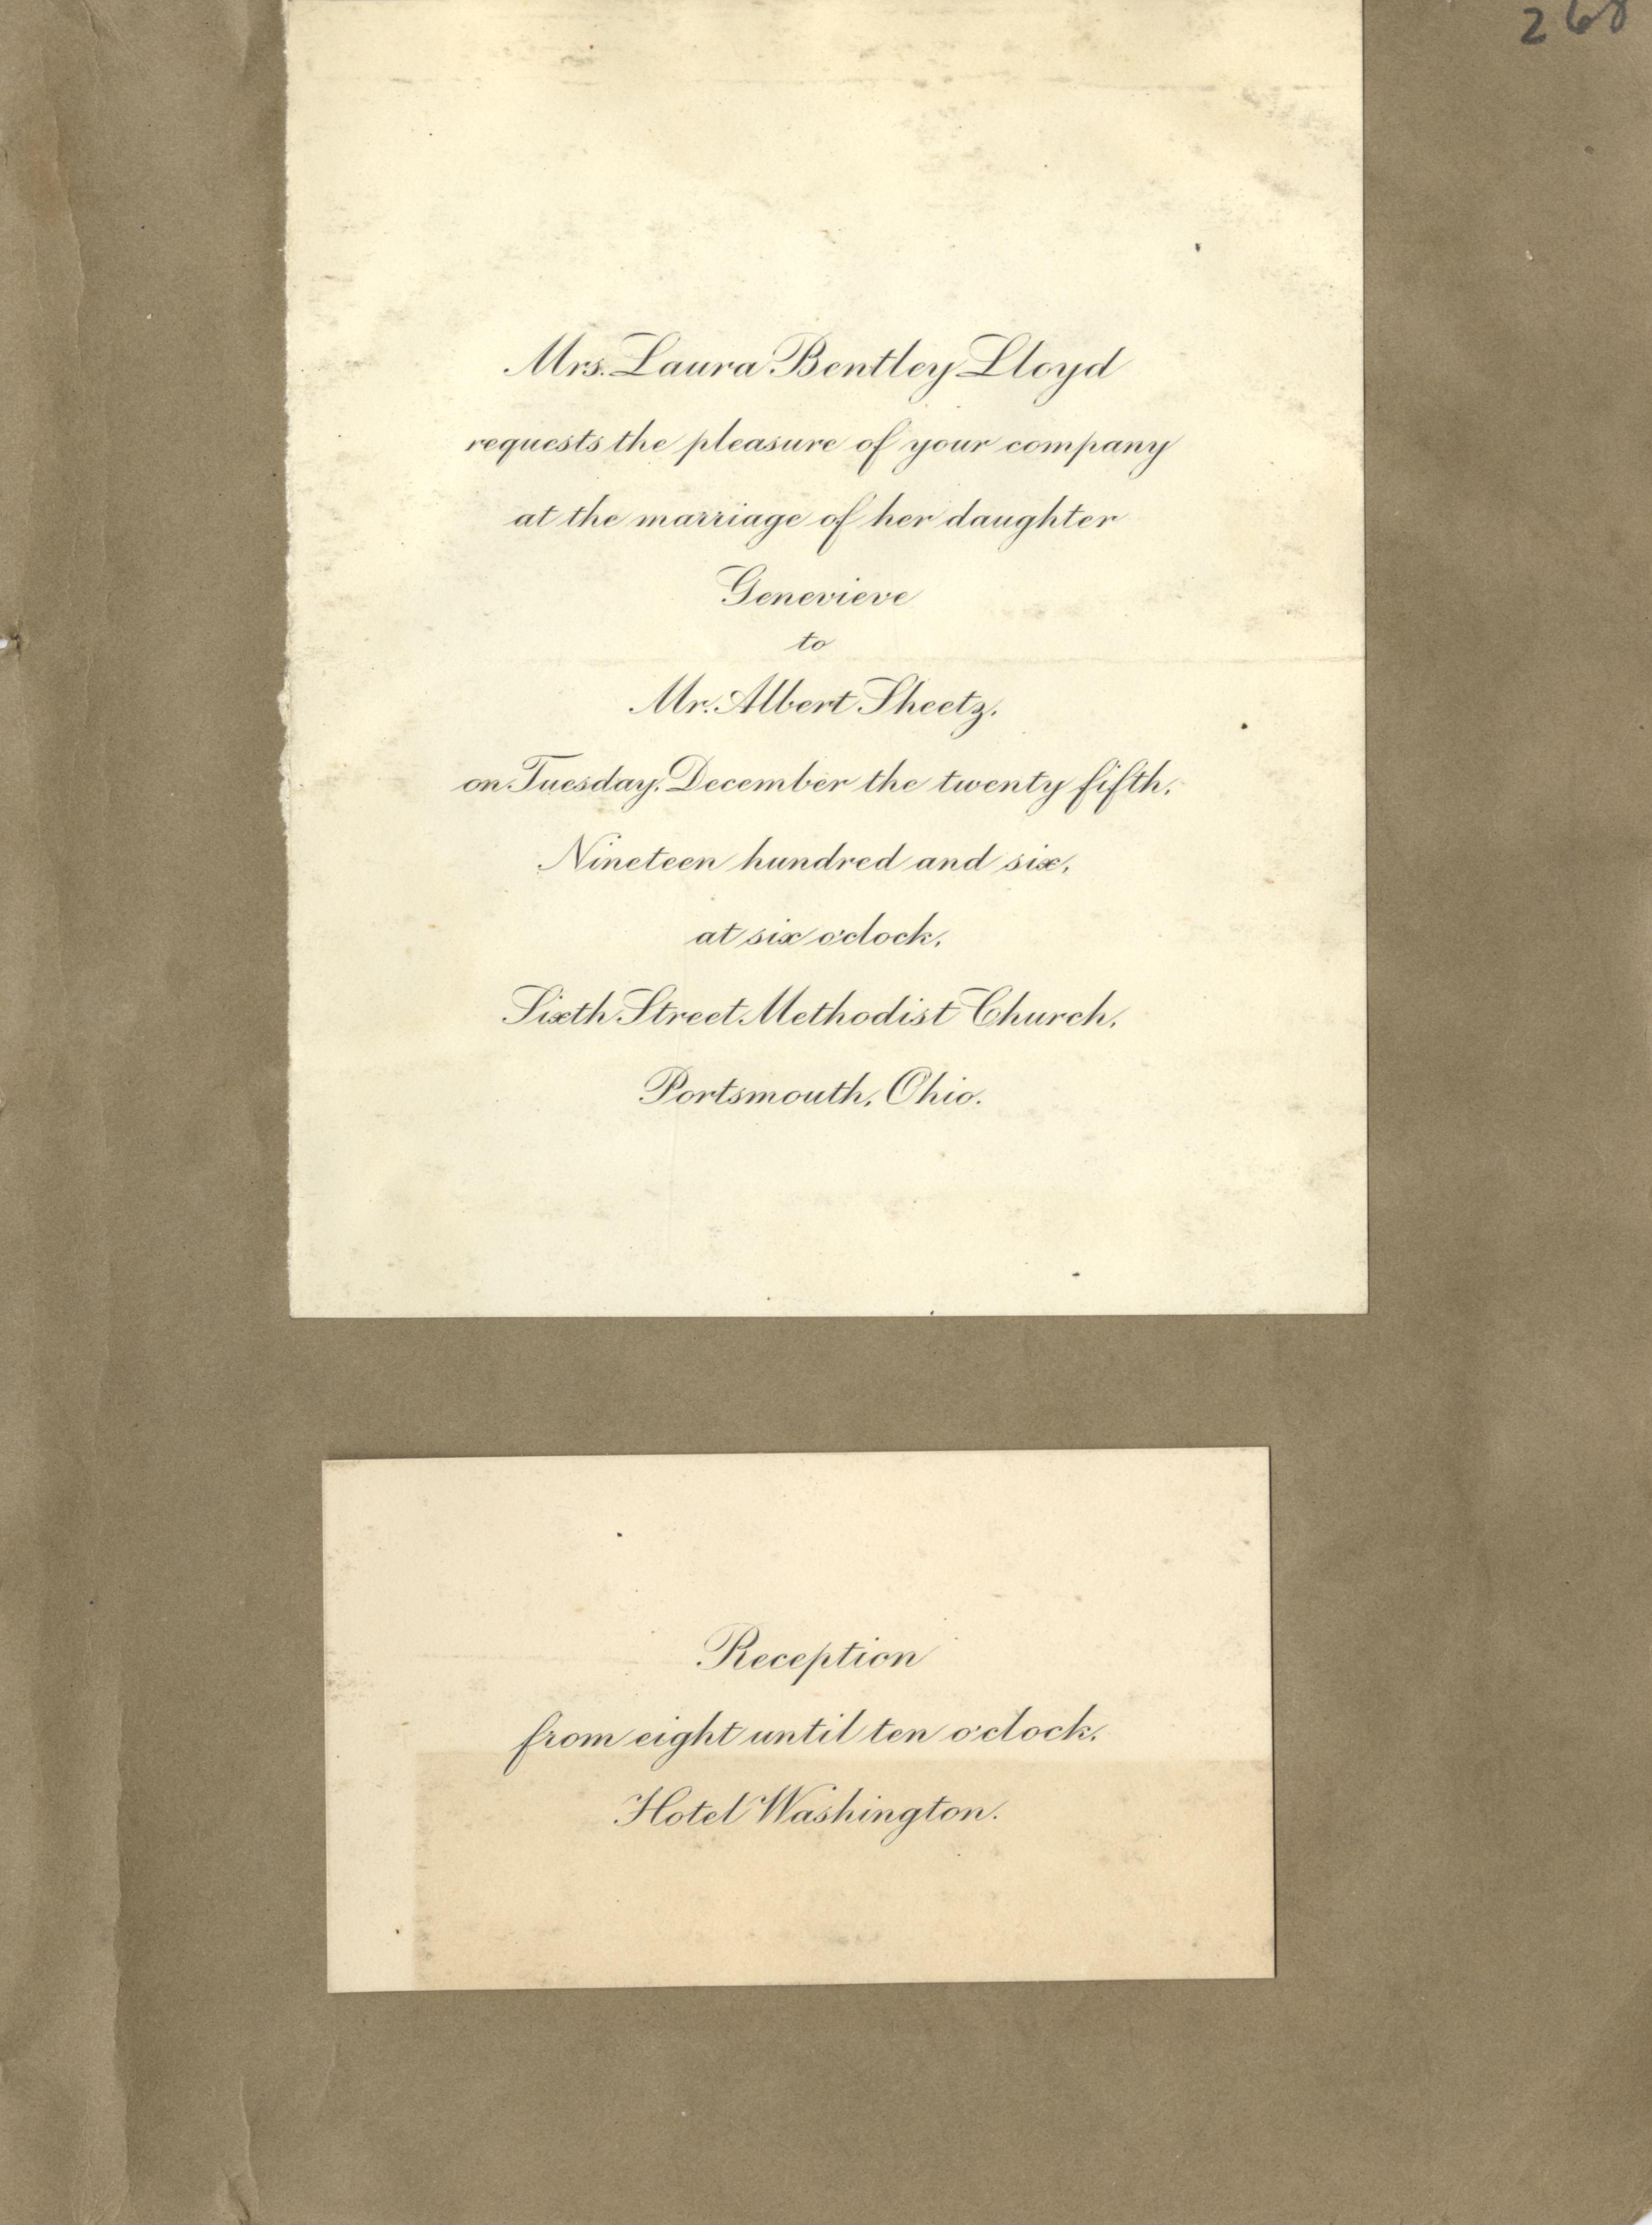 268
Mrs. Laura Bentley Lloyd
requests the pleasure of your company
at the marriage of her daughter
Genevieve
to
Mr. Albert Sheetz,
on Tuesday, December the twenty fifth,
Nineteen hundred and six,
at six o'clock,
Sixth Street Methodist Church,
Portsmouth, Ohio.
Reception
from eight until ten o'clock,
Hotel Washington.